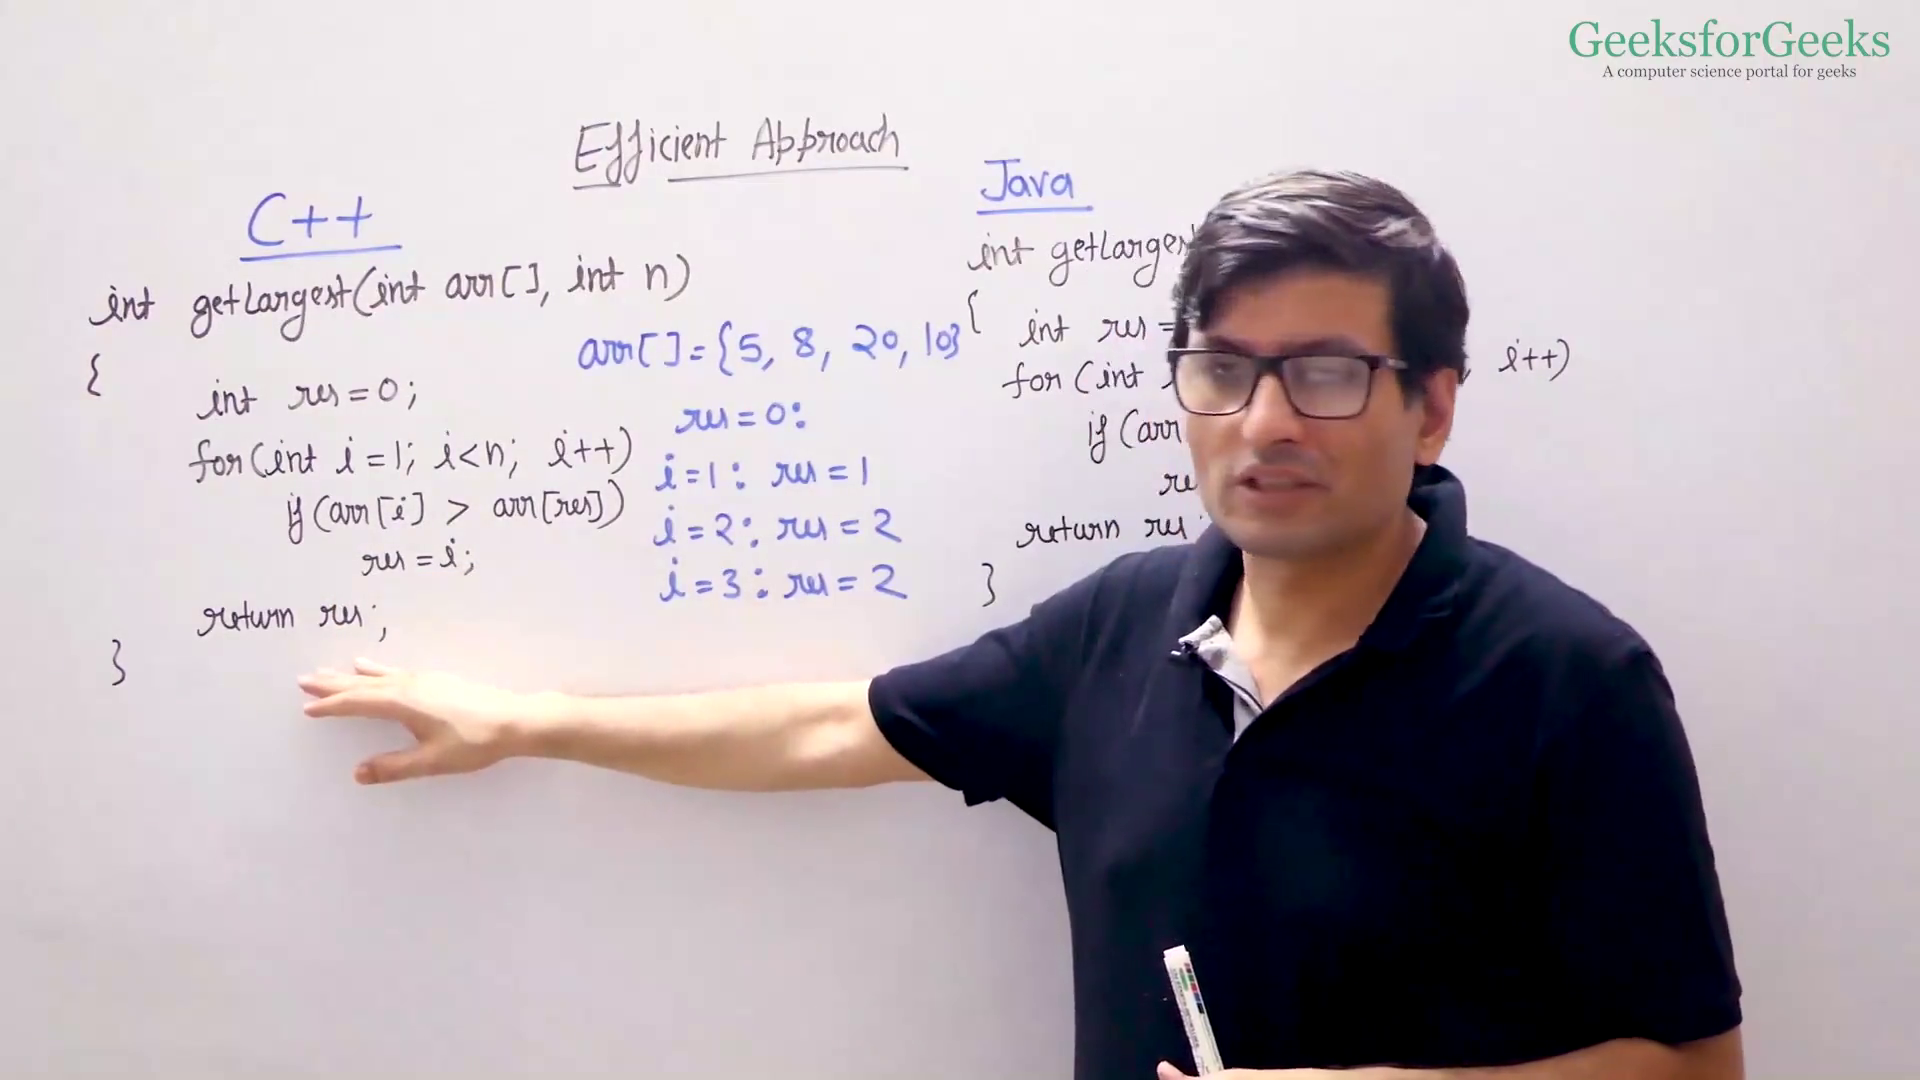 GeeksforGeeks
A computer science portal for geeks
Efficient Approach
C++
int getLargest(int arr[], int n)
{
int res=0;
for(int i=1; i<n; i++)
if(arr[i] > arr[res])
res=i;
return res;
}
arr[]={5, 8, 20, 10}
res=0:
i=1: res=1
i=2: res=2
i=3: res=2
Java
int
{
int res=
for(int i++)
if(arr
return res
}